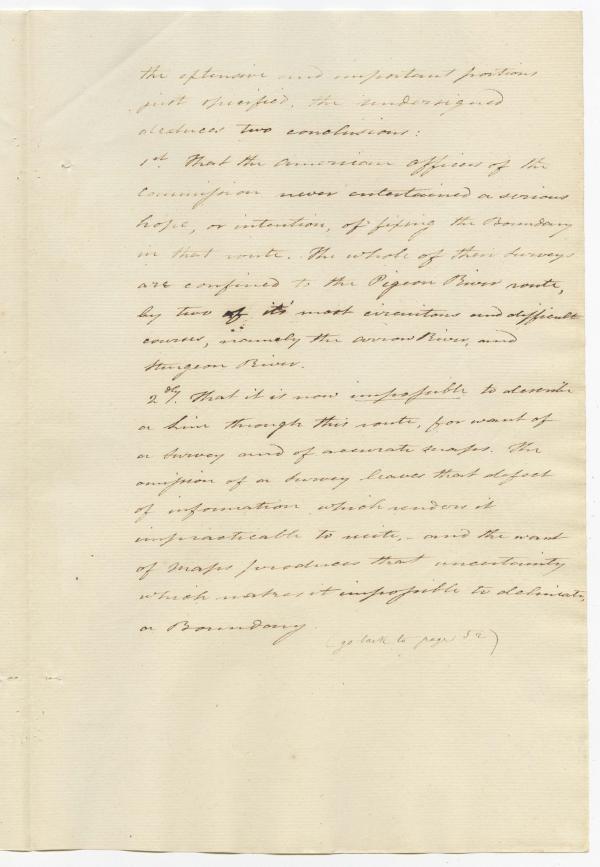 the extensive and important portions
just specified, the undersigned
deduces two conclusions:
1st. That the American officers of the
Commission never entertained a serious
hope, or intention, of fixing the Boundary
in that route. The whole of their Surveys
are confined to the Pigeon River route,
by two of its most circuitous and difficult
courses, namely the arrow River, and
Sturgeon River.
2dly. That it is now impossible to describe
a line through this route, for want of
a survey and of accurate maps. The
omission of a survey leaves that defect
of information which renders it
impracticable to unite, - and the want
of maps produces that uncertainty
which makes it impossible to delineate,
a Boundary.
(go back to page 52)